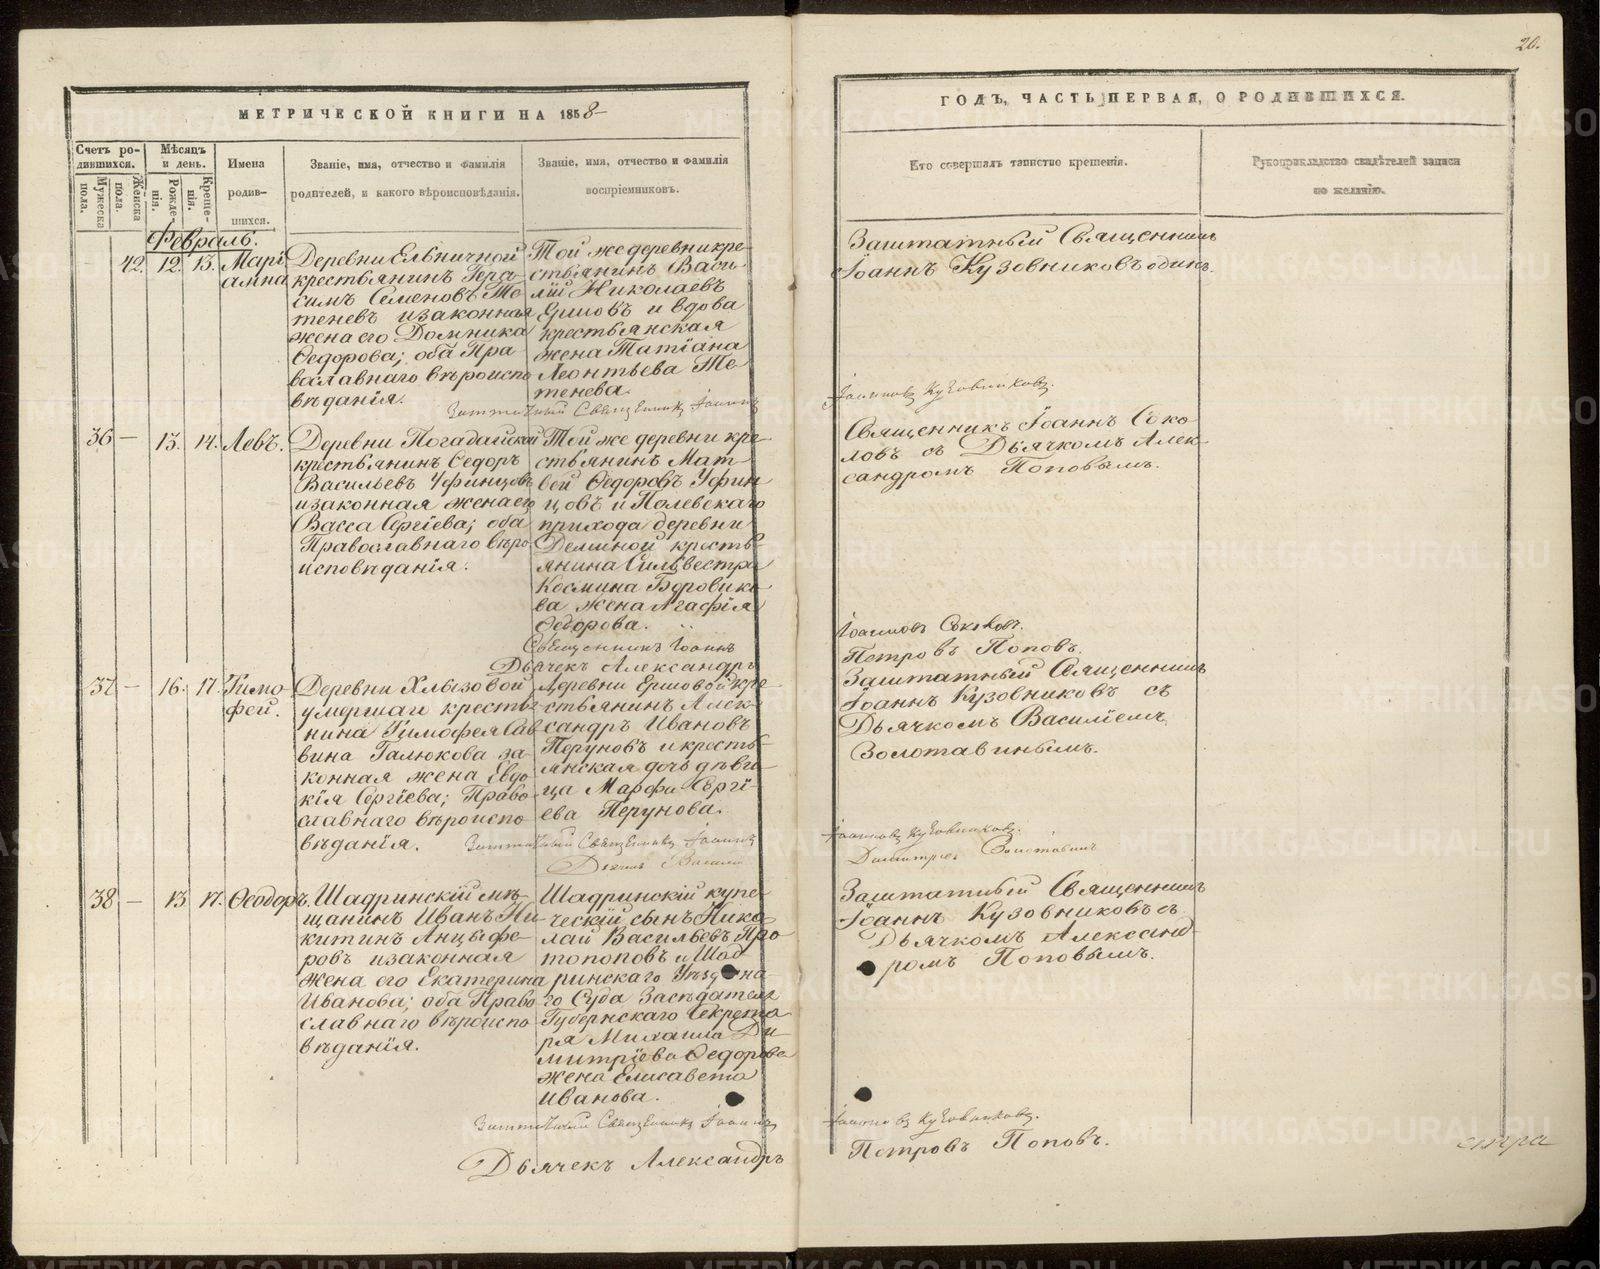 20.
МЕТРИЧЕСКОЙ КНИГИ НА 1858
ГОДЪ, ЧАСТЬ ПЕРВАЯ, О РОДИВШИХСЯ.
Счетъ ро-
дившихся.
Мужеска
пола.
Женска
пола.
Мѣсяцъ
и день.
Рожде-
нія.
Креще-
нія.
Имена
родив-
шихся.
Званіе, имя, отчество и фамилія
родителей, и какого вѣроисповѣданія.
Званіе, имя, отчество и фамилія
воспріемниковъ.
Кто совершалъ таинство крещенія.
Рукоприкладство свидѣтелей записи
по желанію.
Февраль.
42. 12. 13.
Марі
амна
Деревни Ельничной
крестьянинъ Гера
симъ Семеновъ Те
теневъ и законная
жена его Домника
Ѳедорова; оба Пра
вославнаго вѣроиспо
вѣданія.
Той же деревни кре
стьянинъ Васи
лій Николаевъ
Ершовъ и вдова
крестьянская
жена Татіана
Леонтьева Те
тенева.
Заштатный Священникъ
Іоаннъ Кузовниковъ одинъ.
Заштатный Священникъ Іоаннъ
Іоанновъ Кузовниковъ.
36 — 13. 14. Левъ.
Деревни Погадайской
крестьянинъ Ѳедоръ
Васильевъ Уфинцовъ
и законная жена его
Васса Сергіева; оба
Православнаго вѣро
исповѣданія.
Той же деревни кре
стьянинъ Мат
вей Ѳедоровъ Уфин
цовъ и Полевскаго
прихода деревни
Деминой кресть
янина Сильвестра
Космина Боровико
ва жена Агафія
Ѳедорова.
Священникъ Іоаннъ Соко
ловъ съ Дьячкомъ Алек
сандромъ Поповымъ.
Священникъ Іоаннъ
Іоанновъ Соколовъ.
Дьячекъ Александръ
Петровъ Поповъ.
37 — 16. 17.
Тимо
фей.
Деревни Хлызовой
умершаго крестья
нина Тимофея Сав
вина Галюкова за
конная жена Евдо
кія Сергіева; Право
славнаго вѣроиспо
вѣданія.
Деревни Ершовой кре
стьянинъ Алек
сандръ Ивановъ
Перуновъ и кресть
янская дочь дѣви
ца Марфа Сергі
ева Перунова.
Заштатный Священникъ
Іоаннъ Кузовниковъ съ
Дьячкомъ Василіемъ
Золотавинымъ.
Заштатный Священникъ Іоаннъ
Іоанновъ Кузовниковъ.
Дьячекъ Василій
Димитріевъ Золотавинъ
38 — 13 17. Ѳеодоръ.
Шадринскій мѣ
щанинъ Иванъ Ни
китинъ Анцыфе
ровъ и законная
жена его Екатерина
Иванова; оба Право
славнаго вѣроиспо
вѣданія.
Шадринскій купе
ческій сынъ Нико
лай Васильевъ Про
топоповъ и Шад
ринскаго Уѣздна
го Суда Засѣдателя
Губернскаго Секрета
ря Михаила Ди
митріева Ѳедорова
жена Елисавета
Иванова.
Заштатный Священникъ
Іоаннъ Кузовниковъ съ
Дьячкомъ Александ
ромъ Поповымъ.
Заштатный Священникъ Іоаннъ
Іоанновъ Кузовниковъ.
Дьячекъ Александръ
Петровъ Поповъ.
METRIKI.GASO-URAL.RU